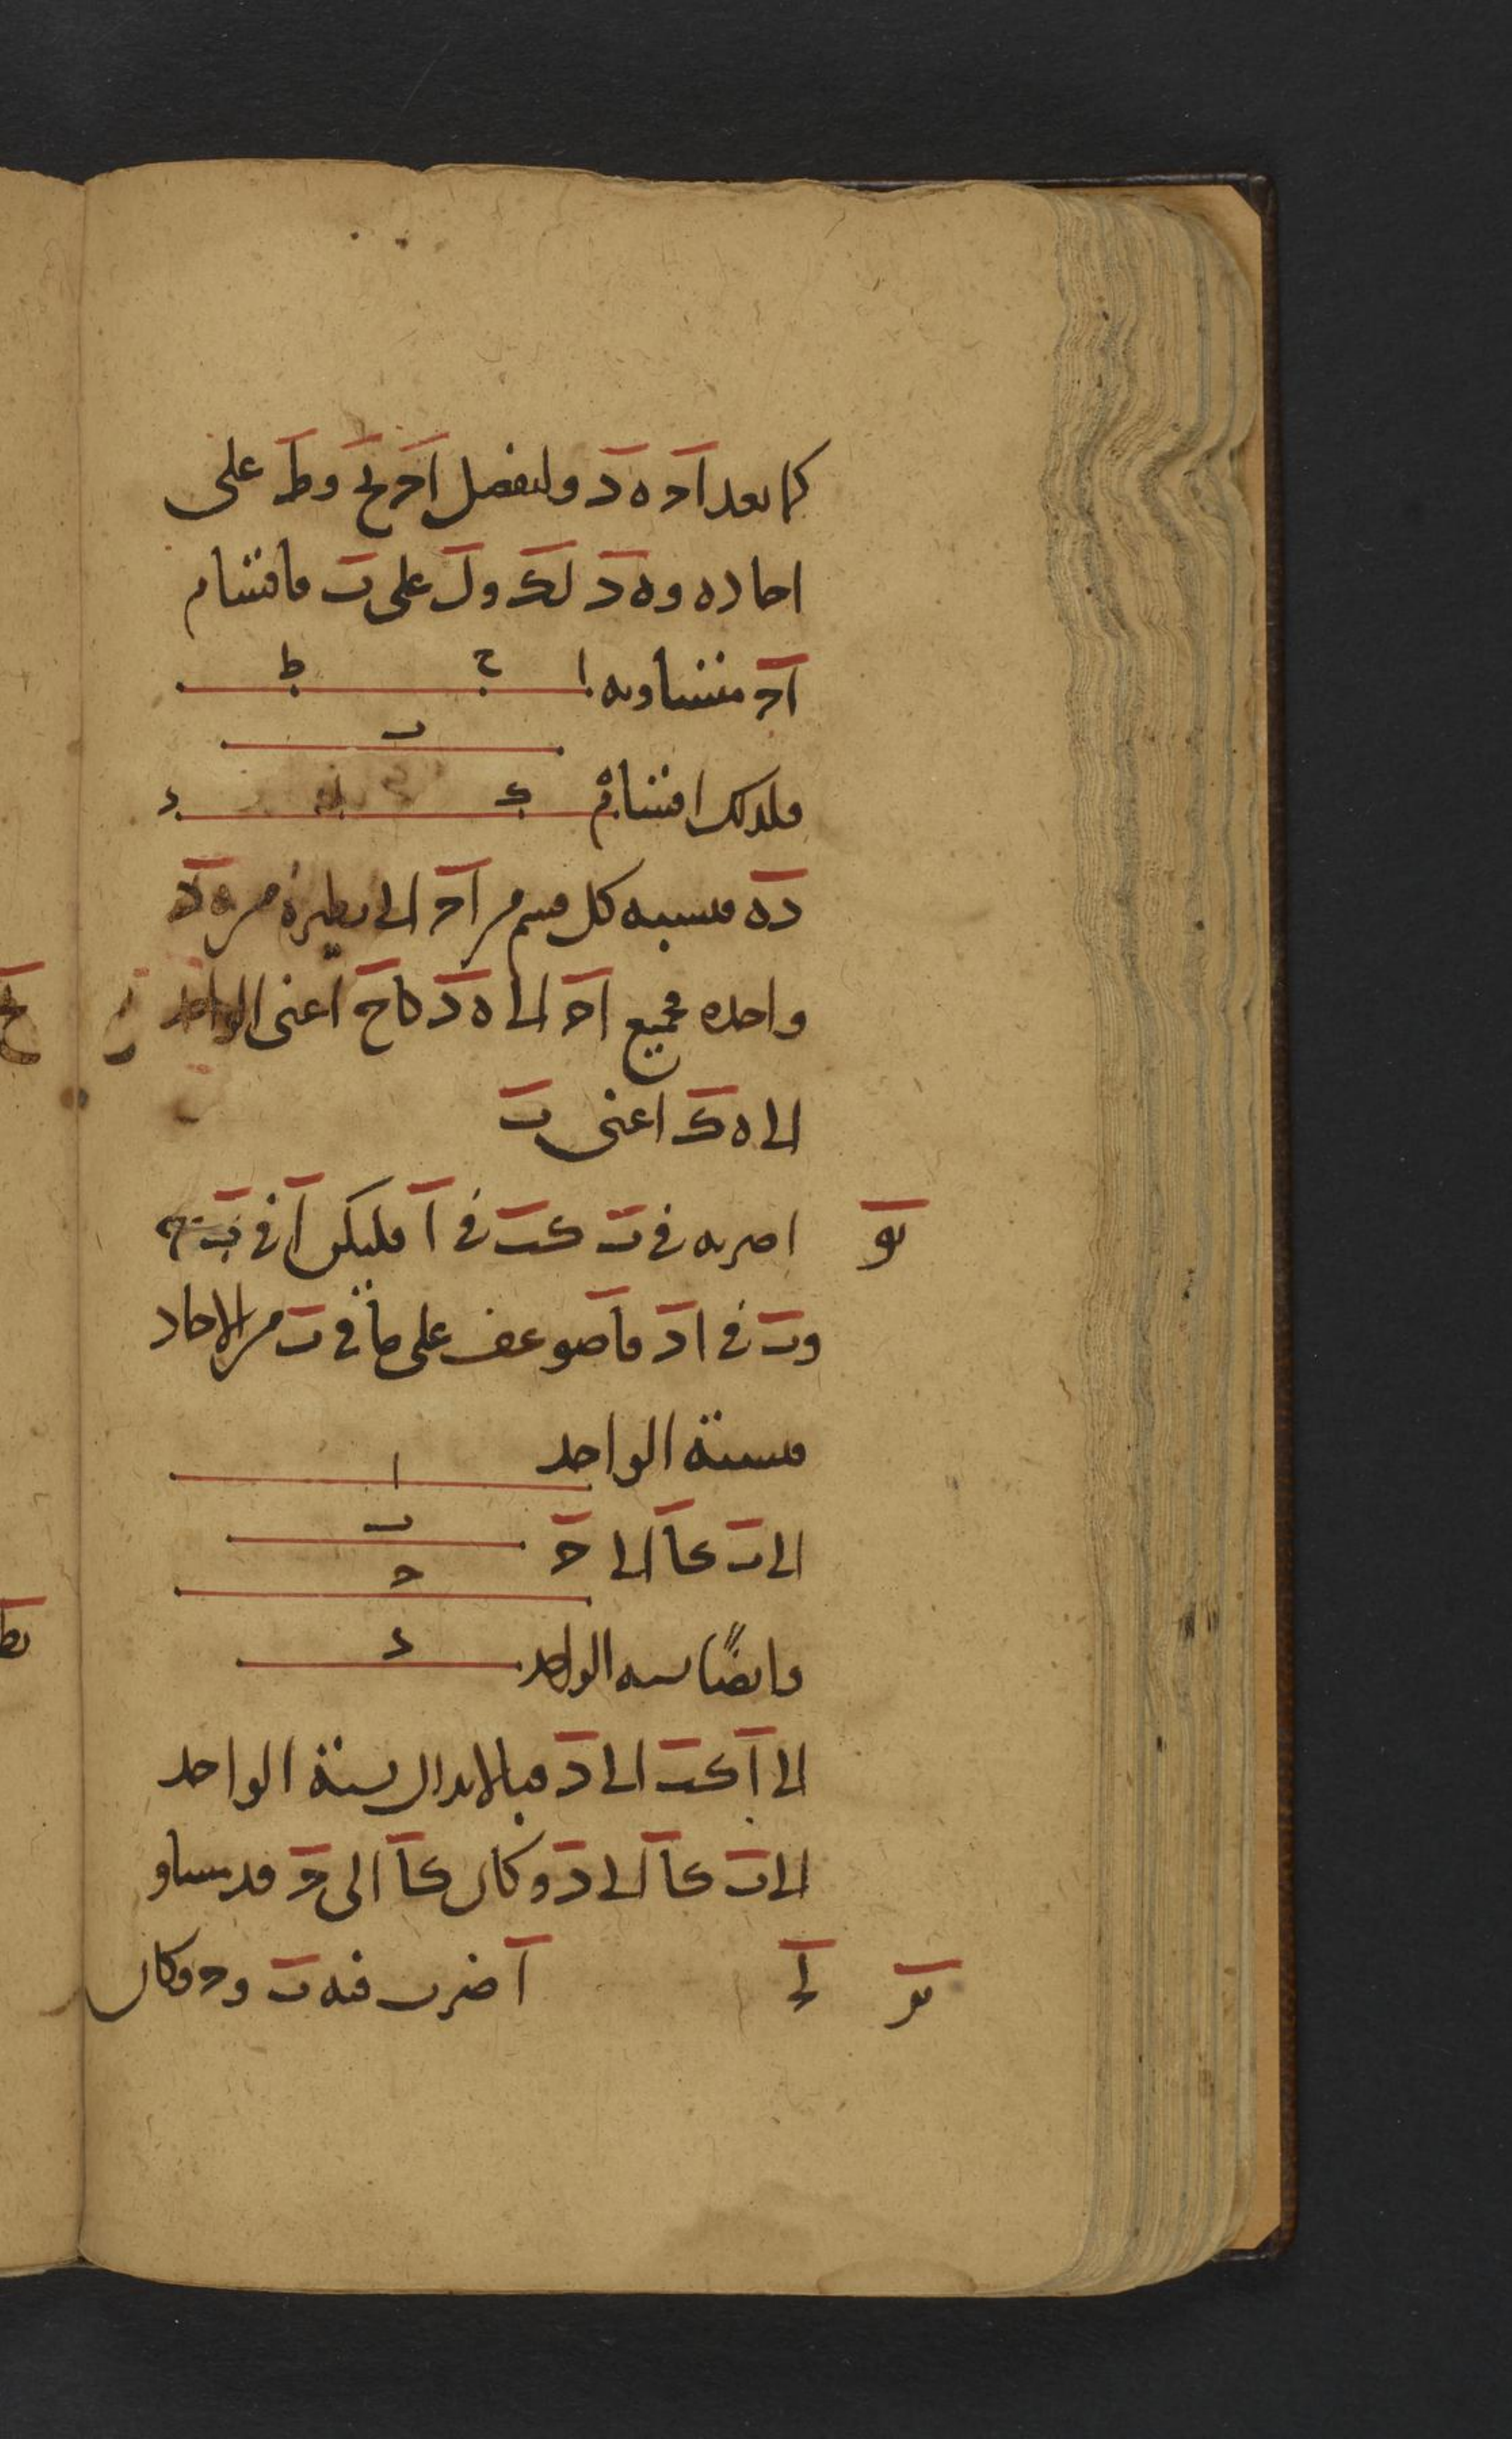 كما يعد اح ه د وليفصل اح بح وط على
احاده وه د بك ول على ب فاقسام
اح متساويه ا ح ط
ب
فلذلك اقسام ك ل د
ده فنسبه كل قسم من اح الى نظيره من ه د
واحده فجميع اح الى ه د كاح اعنى الواحد
الى ه ك اعنى ب
يو اضربه فى ب كب فى ا فليكن ا فى ب ح
وب فى ا د فا ضوعف على ما فى ب من الاحاد
فنسبة الواحد ا
الى ب كا الى ح ب
ح
وايضًا نسبه الواحد د
الى ا كب الى د فبالابدال نسبة الواحد
الى ب كا الى د وكان كا الى ح فد يساو
يز لح ا ضرب فيه ب وح وكان